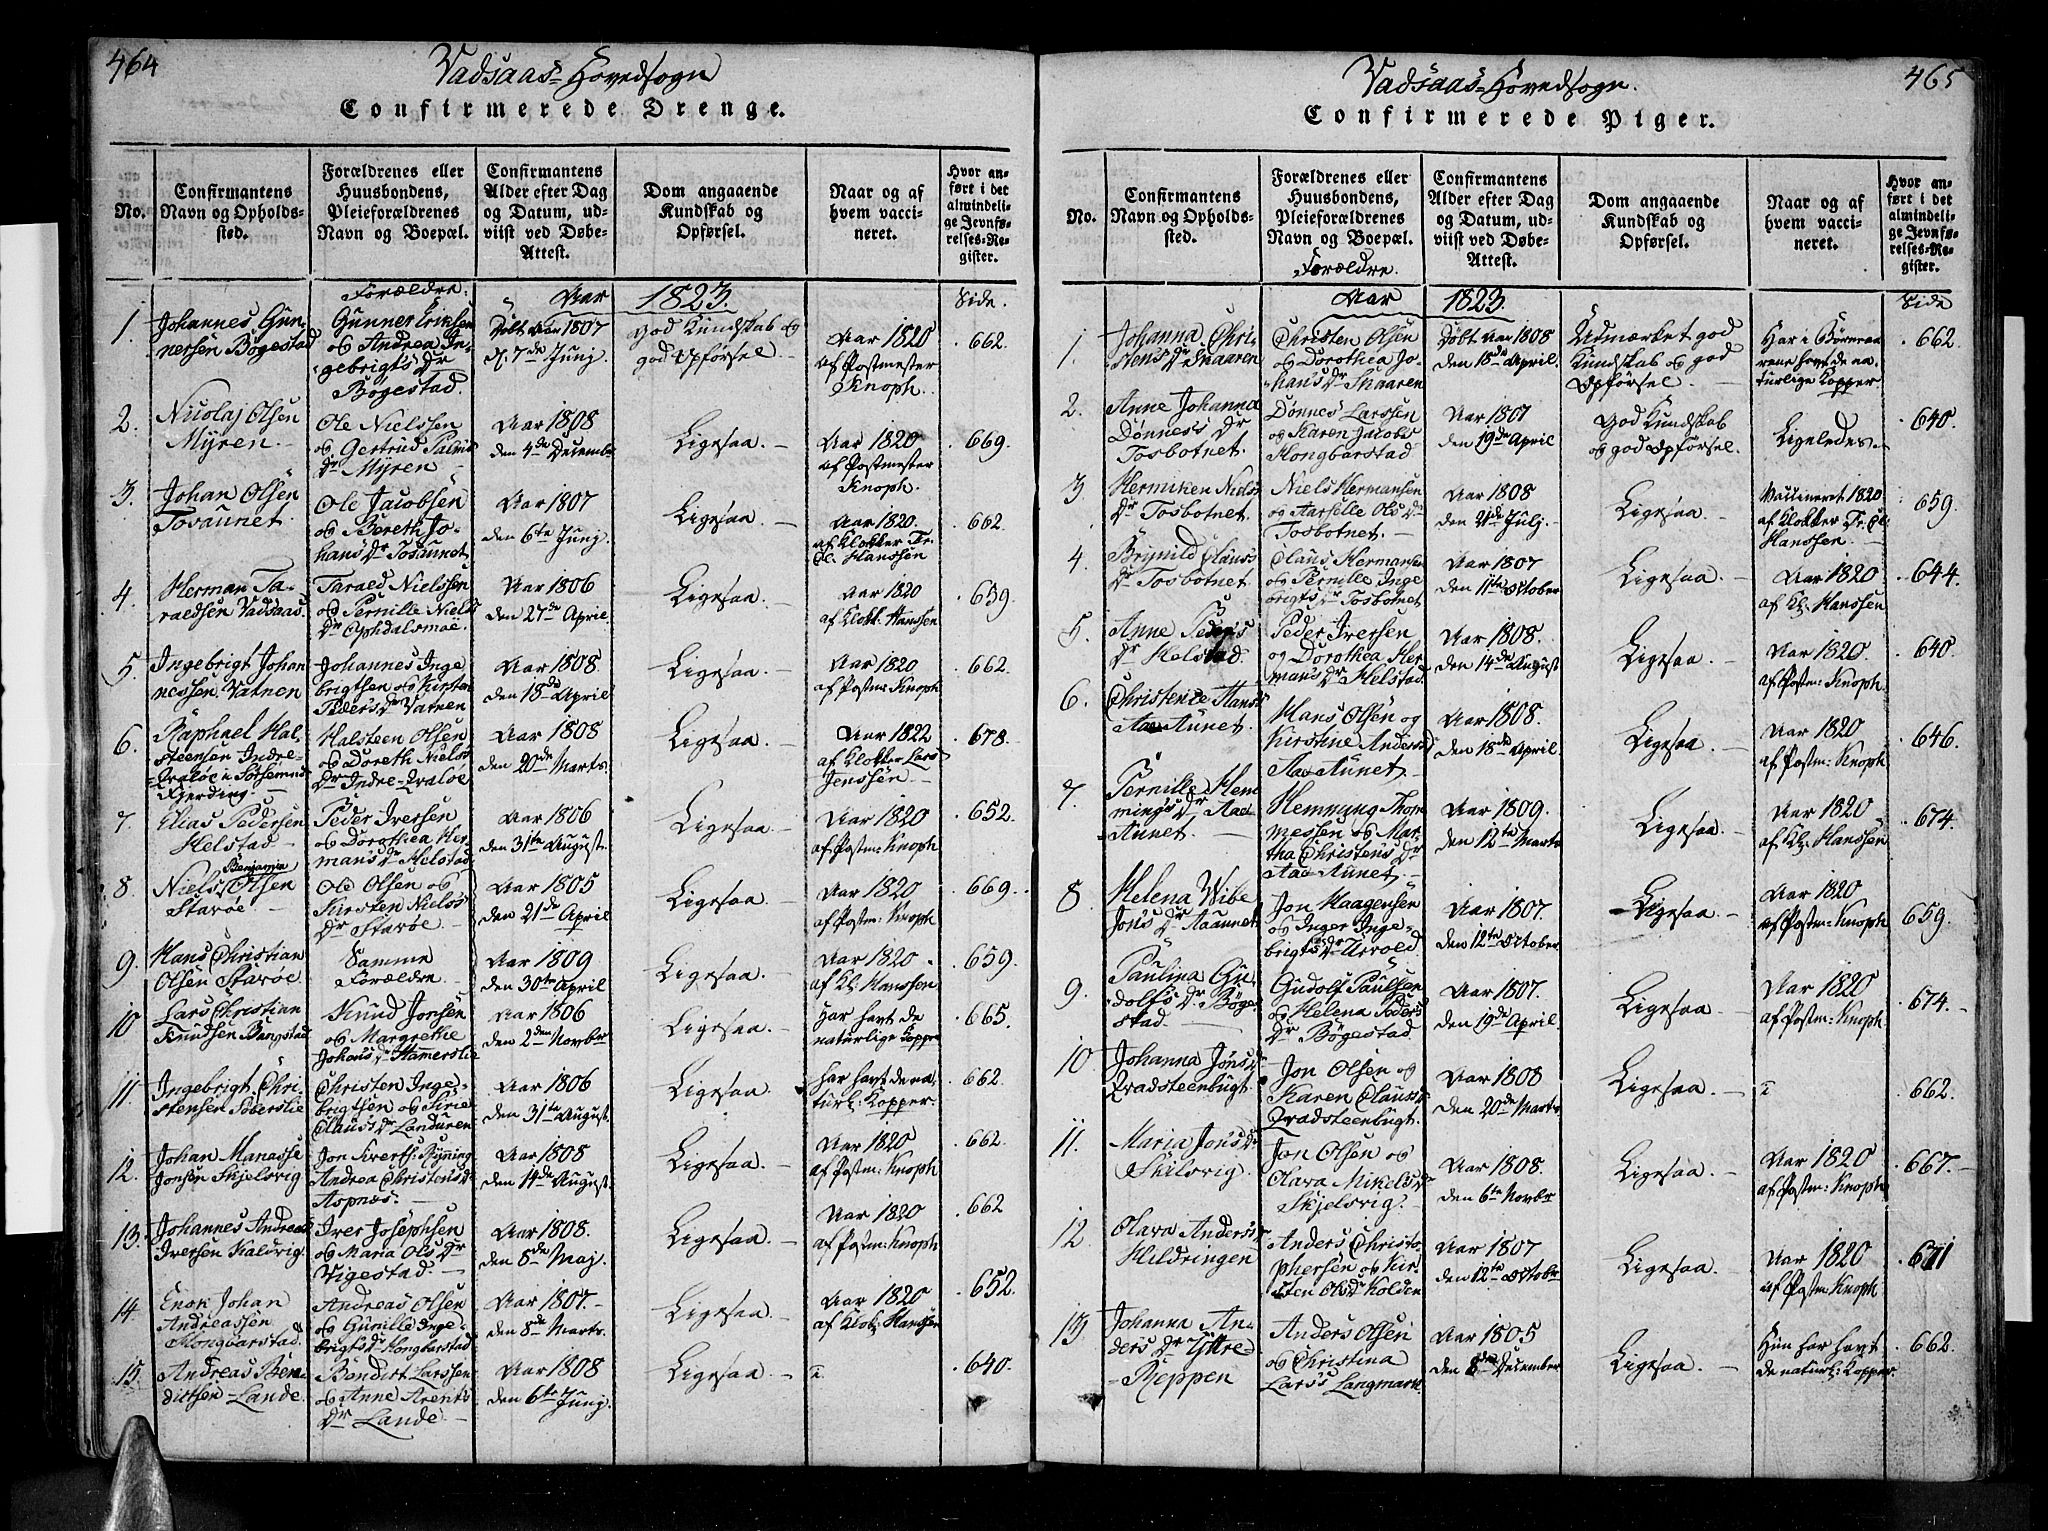 464
Vadsaas Hovedsogn
Confirmerede Drenge.
No.
Confirmantens
Navn og Opholds-
sted.
Forældrenes eller
Huusbondens,
Pleieforældrenes
Navn og Boepæl.
Confirmantens
Alder efter Dag
og Datum, ud-
viist ved Døbe-
Attest.
Dom angaaende
Kundskab og
Opførsel.
Naar og af
hvem vacci-
neret.
Hvor an-
ført i det
almindeli-
ge Jevnfø-
relses-Re-
gister.
Forældre.
Aar 1823.
Side.
1.
Johannes Gun-
nersen Bøgestad
Gunner Eriksen
og Andrea In-
gebrigts Dr
Bøgestad.
Døbt Aar 1807
d. 7de Junj
god Kundskab og
god Opførsel
Aar 1820
af Postmester
Knoph.
662.
2.
Nicolaj Olsen
Myren.
Ole Nielssen
og Gertrud Palms
Dr Myren
Aar 1808
den 4de Decembr
Ligesaa.
Aar 1820
af Postmester
Knoph.
669.
3.
Johan Olsen
Tosaunet.
Ole Jacobsen
og Bereth Jo-
hans Dr Tosaunet
Aar 1807
den 6te Junj.
Ligesaa
Aar 1820.
af Klokker Fr.
Cl. Hanssen
662.
4.
Herman Ta-
raldsen Vadsaas.
Taraed Nielssen
og Pernille Niels
Dr Ophdalsmoe.
Aar 1806
den 27de April
Ligesaa
Aar 1820
af Klokk: Hanssen
659.
5.
Ingebrigt Johan
nessen Vatnen
Johannes Inge
brigtsen og Kirsten
Peders Dr Vatnen
Aar 1808
den 18de April
Ligesaa.
Aar 1820
af Postm: Knoph.
662.
6.
Raphael Hal-
steensen Indre-
Qvaløe i Torsemnd
Fjerding.
Halsteen Olsen
og Doreth Niels
Dr Indre-Qvaløe
Aar 1808
den 20de Marts.
Ligesaa.
Aar 1822
af Klokker Lars
Jenssen
678.
7.
Elias Pedersen
Helstad
Peder Iversen
og Dorothea Her-
mans Dr Helstad
Aar 1806
den 31te August.
Ligesaa.
Aar 1820
af Postm: Knoph
652.
8.
Benjamin
Niels Olsen
Starøe.
Ole Olsen og
Kirsten Niels
Dr Starøe
Aar 1805
den 21de April
Ligesaa.
Aar 1820
af Postm: Knoph
669.
9.
Hans Christian
Olsen Starøe
Samme
Forældre
Aar 1809
den 30te April
Ligesaa.
Aar 1820
af Kl: Hanssen
659.
10
Lars Christian
Knudsen Bangstad
Knud Jonsen
og Margrethe
Johans Dr Hammerslie
Aar 1806
den 2den Novbr
Ligesaa.
har havt de
naturlige Kopper
665.
11.
Ingebrigt Chri-
stensen Soberslie
Christen Inge-
brigtsen og Sirie
Claus Dr Landuren
Aar 1806
den 31te August.
Ligesaa.
har havt de na-
turl: Kopper.
662.
12.
Johan Manasse
Jonsen Skjelsvig
Andrea Christens Dr
Aspnæs.
Aar 1808
den 14de August.
Ligesaa.
Aar 1820
af Postm: Knoph
662.
13.
Johannes Andreas
Iversen Kaldvig.
Iver Josephsen
og Maria Ols Dr
Vigestad.
Aar 1808.
den 8de Maj.
Ligesaa.
Aar 1820
af Postm: Knoph.
662
14.
Enok Johan
Andreassen
Hongbarstad.
Andreas Olsen
og Gunille Inge-
brigts Dr Hongbarstad
Aar 1807.
den 8de Marts.
Ligesaa.
Aar 1820
af Klok: Hanssen
652.
15.
Andreas Ben-
dictsen Lande.
Bendict Larssen
og Anne Arents
Dr Lande
Aar 1808
den 6te Junj
Ligesaa.
640.
465
Vadsaas Hovedsogn.
Confirmerede Piger.
No.
Confirmantens
Navn og Opholds-
sted.
Forældrenes eller
Huusbondens,
Pleieforældrenes
Navn og Boepæl.
Confirmantens
Alder efter Dag
og Datum, ud-
viist ved Døbe-
Attest.
Dom angaaende
Kundskab og
Opførsel.
Naar og af
hvem vacci-
neret.
Hvor an-
ført i det
almindeli-
ge Jevnfø-
relses-Re-
gister.
Forældre.
Aar 1823
Side
1.
Johanna Chri-
stens Dr Skaaren
Christen Olsen
og Dorothea Jo-
hans Dr Skaaren
Døbt Aar 1808
den 18de April.
Udmærket god
Kundskab og god
Opførsel
Har i Børneaa
rene havt de na
turlige Kopper.
662.
2.
Anne Johanna
Dønnes Dr
Tosbotnet.
Dønnes Larssen
og Karen Jacobs
Hongbarstad
Aar 1807
den 19de April
God Kundskab
og god Opførsel.
Ligeledes.
640.
3
Hermiken Niels
Dr Tosbotnet.
Niels Hermansen
og Aarselle Ols Dr
Tosbotnet.
Aar 1808
den 21de Julj.
Ligesaa
Vaccineret 1820
af Klokker Fr. Cl.
Hanssen.
659.
4.
Brynild Clauss
Dr Tosbotnet.
Claus Hermansen
og Pernille Inge
brigts Dr Tosbotnet
Aar 1807
den 11te October
Ligesaa
Aar 1820
af Kl: Hanssen
644.
5.
Anne Peders
Dr Helstad.
Peder Iversen
og Dorothea Her
mans Dr Helstad.
Aar 1808.
den 14de August
Ligesaa
Aar 1820.
af Postm: Knoph.
640.
6.
Christence Hans
Aa Aunet.
Hans Olsen og
Kirstine Anders
Aa Aunet.
Aar 1808.
den 18de April.
Ligesaa
Aar 1820
af Postm: Knoph
646.
7.
Pernille Hem
mings Dr Aae
Aunet.
Hemming Thom
messen og Mar-
tha Christens Dr
Aa Aunet.
Aar 1809.
den 12te Marts
Ligesaa
Aar 1820
af Kl: Hanssen
674.
8
Helena Wibe
Jons Dr Aaaunet
Jon Haagensen
og Inger Inge-
Aar 1807.
den 12te October
Ligesaa.
Aar 1820
af Postm: Knoph
659.
9.
Paulina Gu
dolfs Dr Bøge
stad.
Gudolf Paulsen
og Helena Peders
Dr Bøgestad
Aar 1807.
den 19de April.
Ligesaa.
Aar 1820
af Postm: Knoph
674.
10.
Johanna Jons
Qvadsteenbugt.
Jon Olsen og
Karen Claus
Qvadsteenbugt.
Aar 1808
den 20de Marts
Ligesaa.
662.
11.
Maria Jons Dr
Skilsvig.
Jon Olsen og
Olava Mikels Dr
Skjelsvig.
Aar 1808.
den 6te Novbr
Ligesaa.
Aar 1820
af Postm: Knoph
667.
12.
Olava Anders
Hildringen
Anders Christo-
phersen og Kir-
sten Ols Dr Kolden
Aar 1807
den 12te October
Ligesaa.
Aar 1820
af Postm: Knoph.
671
13.
Johanna An-
ders Dr Yttre-
Reppen
Anders Olsen
og Christina
Lars's Langmark
Aar 1805
den 8de December
Ligesaa.
Hun har havt
de naturl: Kopper.
662.